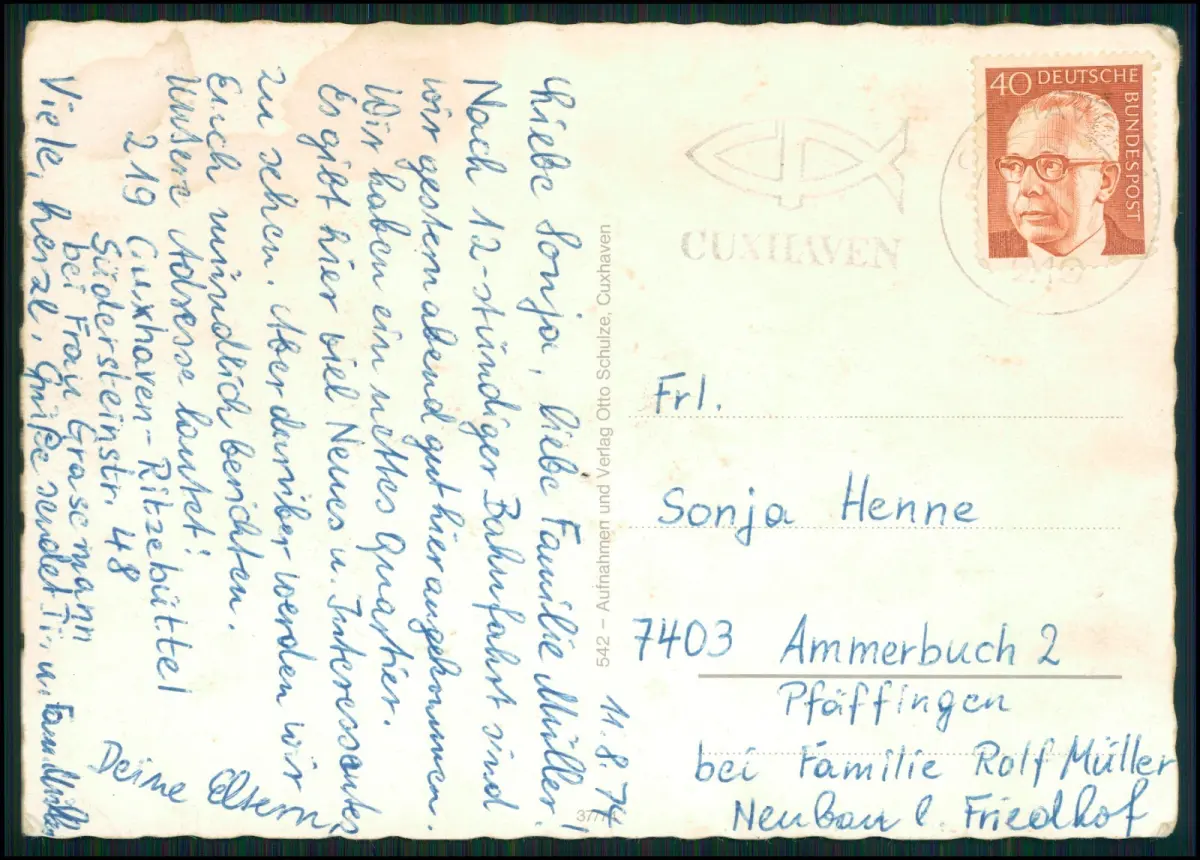 11.8.74
Liebe Sonja, liebe Familie Müller!
Nach 12-stündiger Bahnfahrt sind
wir gestern abend gut hier angekommen.
Wir haben ein nettes Quartier.
Es gibt hier viel Neues u. Interessantes
zu sehen. Aber darüber werden wir
Euch mündlich berichten.
Unsere Adresse lautet!
219 Cuxhaven-Ritzebüttel
Südersteinstr. 48
bei Frau Grasemann
Viele, herzl. Grüße sendet Dir u. Fam. Müller
Deine Eltern
542 – Aufnahmen und Verlag Otto Schulze, Cuxhaven
40 DEUTSCHE BUNDESPOST
CUXHAVEN
Frl.
Sonja Henne
7403 Ammerbuch 2
Pfäffingen
bei Familie Rolf Müller
Neubau b. Friedhof